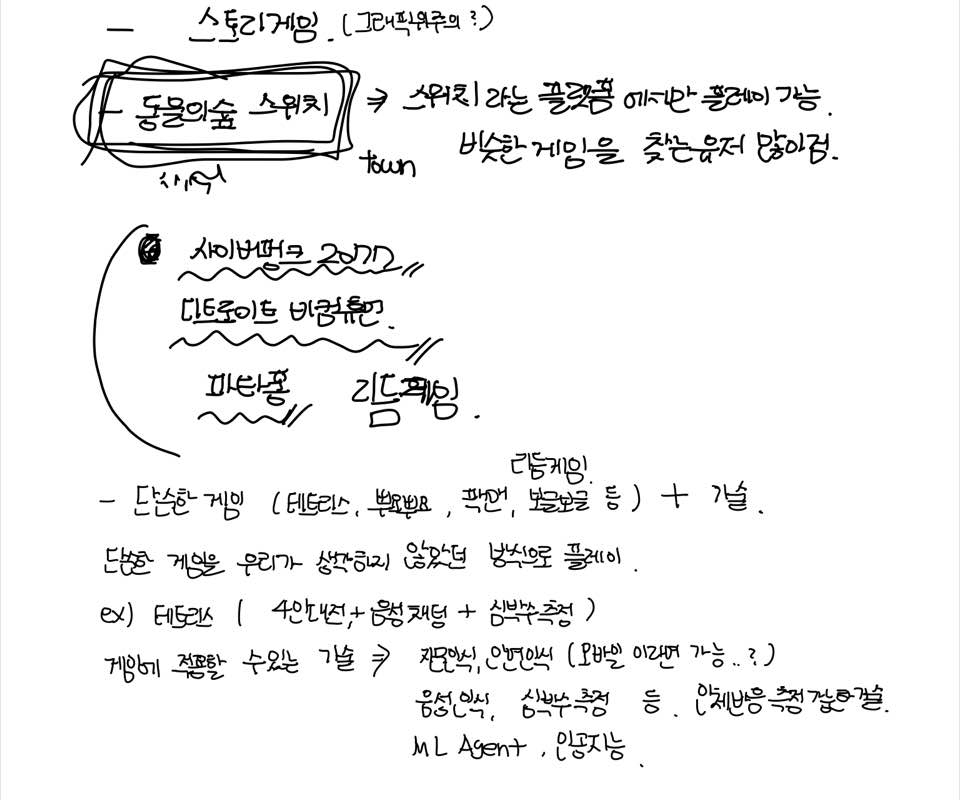 - 스토리게임. (그래픽위주의?)
- 동물의숲 스위치 ⇒ 스위치 라는 플랫폼 에서만 플레이 가능.
town 비슷한 게임을 찾는유저 많아짐.
사이버펑크 2077
디트로이트 비컴휴먼.
파타퐁 리듬게임.
리듬게임.
- 단순한 게임 (테트리스, 뿌요뿌요, 팩맨, 보글보글 등) + 기술.
단순한 게임을 우리가 생각하지 않았던 방식으로 플레이.
ex) 테트리스 ( 4인대전, + 음성채팅 + 심박수측정 )
게임에 적용할 수있는 기술 ⇒ 지문인식, 안면인식 (모바일 이라면 가능..?)
음성인식, 심박수측정 등. 인체반응 측정 가능한기술.
ML Agent, 인공지능.